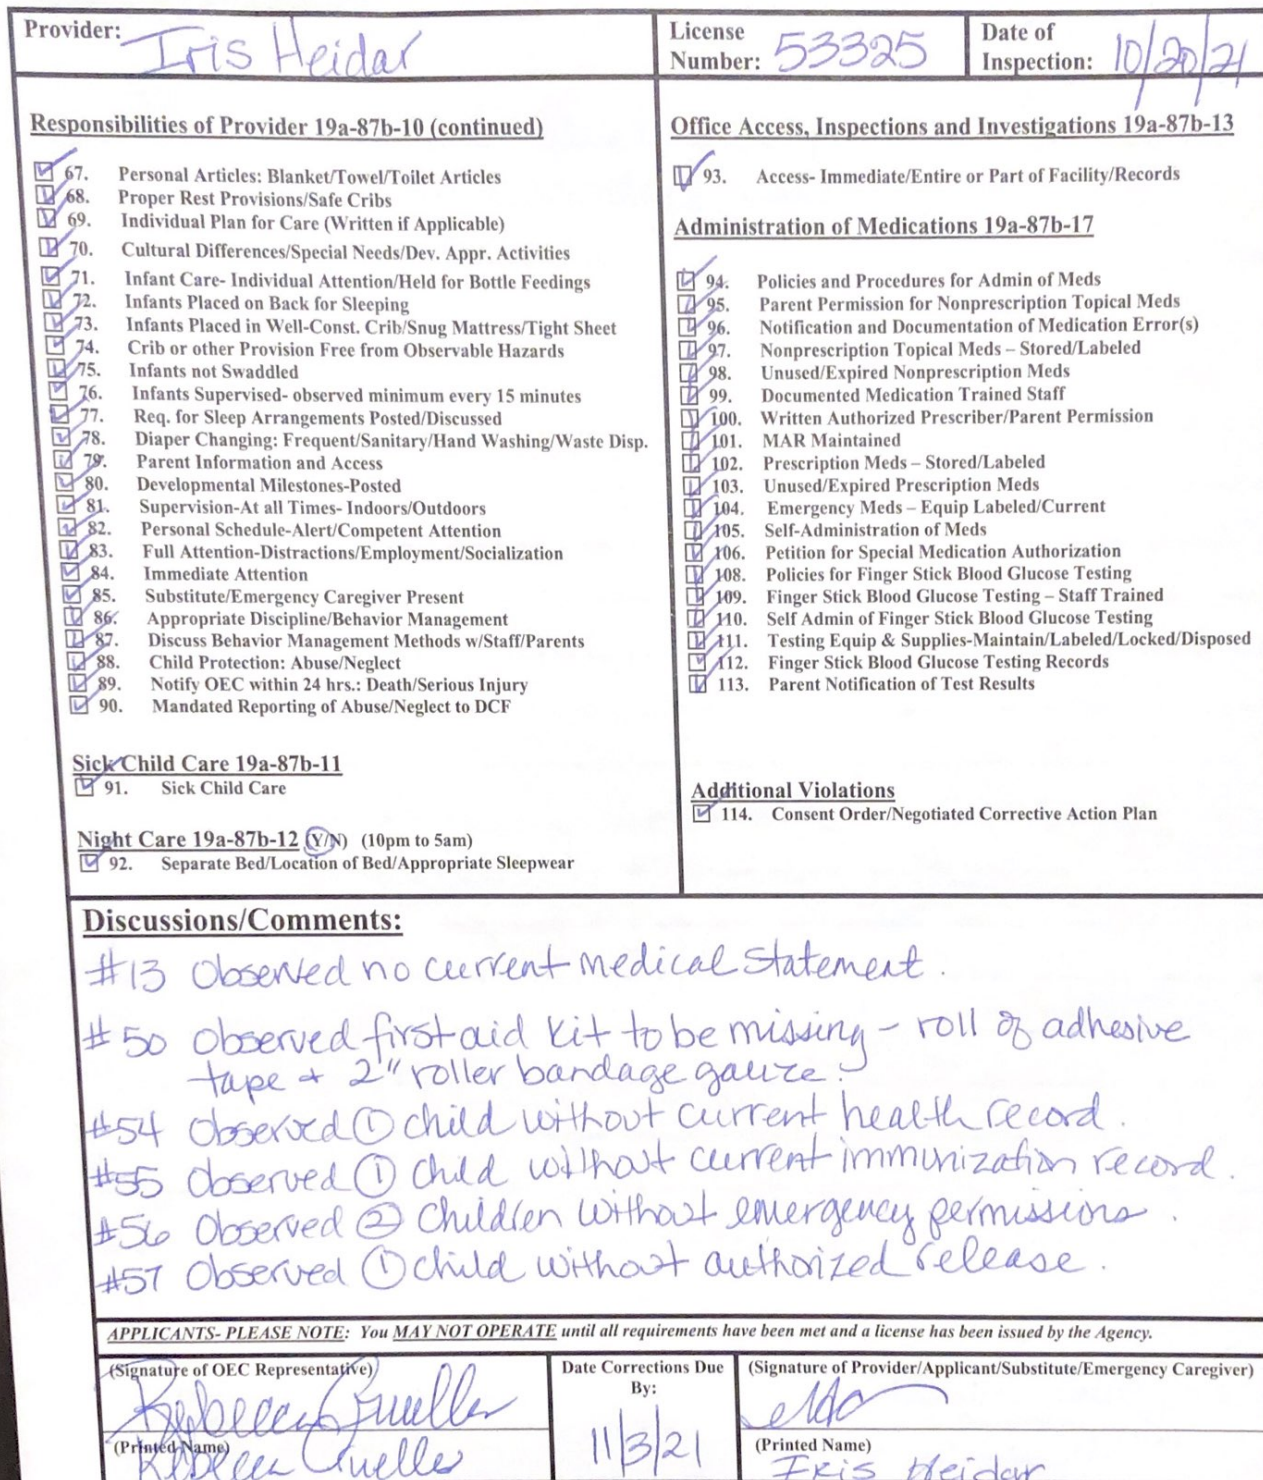 Provider: Iris Heidar
License Number: 53325
Date of Inspection: 10/20/21
Responsibilities of Provider 19a-87b-10 (continued)
67. Personal Articles: Blanket/Towel/Toilet Articles
68. Proper Rest Provisions/Safe Cribs
69. Individual Plan for Care (Written if Applicable)
70. Cultural Differences/Special Needs/Dev. Appr. Activities
71. Infant Care- Individual Attention/Held for Bottle Feedings
72. Infants Placed on Back for Sleeping
73. Infants Placed in Well-Const. Crib/Snug Mattress/Tight Sheet
74. Crib or other Provision Free from Observable Hazards
75. Infants not Swaddled
76. Infants Supervised- observed minimum every 15 minutes
77. Req. for Sleep Arrangements Posted/Discussed
78. Diaper Changing: Frequent/Sanitary/Hand Washing/Waste Disp.
79. Parent Information and Access
80. Developmental Milestones-Posted
81. Supervision-At all Times- Indoors/Outdoors
82. Personal Schedule-Alert/Competent Attention
83. Full Attention-Distractions/Employment/Socialization
84. Immediate Attention
85. Substitute/Emergency Caregiver Present
86. Appropriate Discipline/Behavior Management
87. Discuss Behavior Management Methods w/Staff/Parents
88. Child Protection: Abuse/Neglect
89. Notify OEC within 24 hrs.: Death/Serious Injury
90. Mandated Reporting of Abuse/Neglect to DCF
Sick Child Care 19a-87b-11
91. Sick Child Care
Night Care 19a-87b-12 (Y/N) (10pm to 5am)
92. Separate Bed/Location of Bed/Appropriate Sleepwear
Office Access, Inspections and Investigations 19a-87b-13
93. Access- Immediate/Entire or Part of Facility/Records
Administration of Medications 19a-87b-17
94. Policies and Procedures for Admin of Meds
95. Parent Permission for Nonprescription Topical Meds
96. Notification and Documentation of Medication Error(s)
97. Nonprescription Topical Meds – Stored/Labeled
98. Unused/Expired Nonprescription Meds
99. Documented Medication Trained Staff
100. Written Authorized Prescriber/Parent Permission
101. MAR Maintained
102. Prescription Meds – Stored/Labeled
103. Unused/Expired Prescription Meds
104. Emergency Meds – Equip Labeled/Current
105. Self-Administration of Meds
106. Petition for Special Medication Authorization
108. Policies for Finger Stick Blood Glucose Testing
109. Finger Stick Blood Glucose Testing – Staff Trained
110. Self Admin of Finger Stick Blood Glucose Testing
111. Testing Equip & Supplies-Maintain/Labeled/Locked/Disposed
112. Finger Stick Blood Glucose Testing Records
113. Parent Notification of Test Results
Additional Violations
114. Consent Order/Negotiated Corrective Action Plan
Discussions/Comments:
#13 Observed no current medical statement.
#50 Observed first aid kit to be missing - roll of adhesive
tape + 2" roller bandage gauze.
#54 Observed ① child without current health record.
#55 Observed ① child without current immunization record.
#56 Observed ② children without emergency permissions.
#57 Observed ① child without authorized release.
APPLICANTS- PLEASE NOTE: You MAY NOT OPERATE until all requirements have been met and a license has been issued by the Agency.
(Signature of OEC Representative)
Rebecca
(Printed Name)
Rebecca
Date Corrections Due By:
11/3/21
(Signature of Provider/Applicant/Substitute/Emergency Caregiver)
(Printed Name)
Iris Heidar